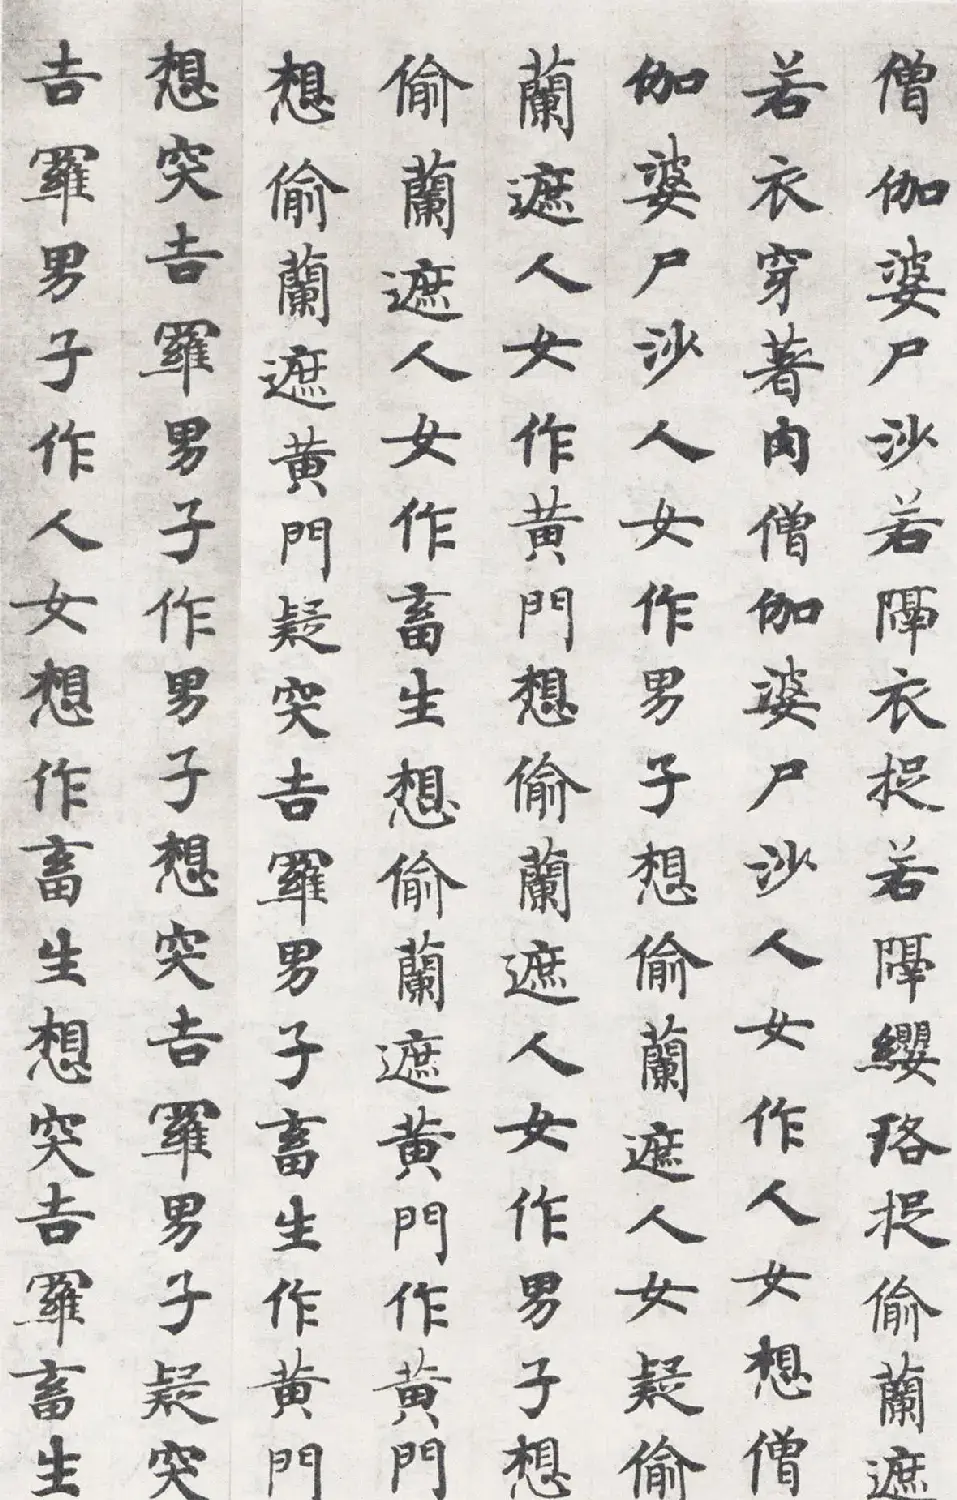 僧伽婆尸沙若障衣捉若障纓珞捉偷蘭遮
若衣穿著肉僧伽婆尸沙人女作人女想僧
伽婆尸沙人女作男子想偷蘭遮人女疑偷
蘭遮人女作黃門想偷蘭遮人女作男子想
偷蘭遮人女作畜生想偷蘭遮黃門作黃門
想偷蘭遮黃門疑突吉羅男子畜生作黃門
想突吉羅男子作男子想突吉羅男子疑突
吉羅男子作人女想作畜生想突吉羅畜生